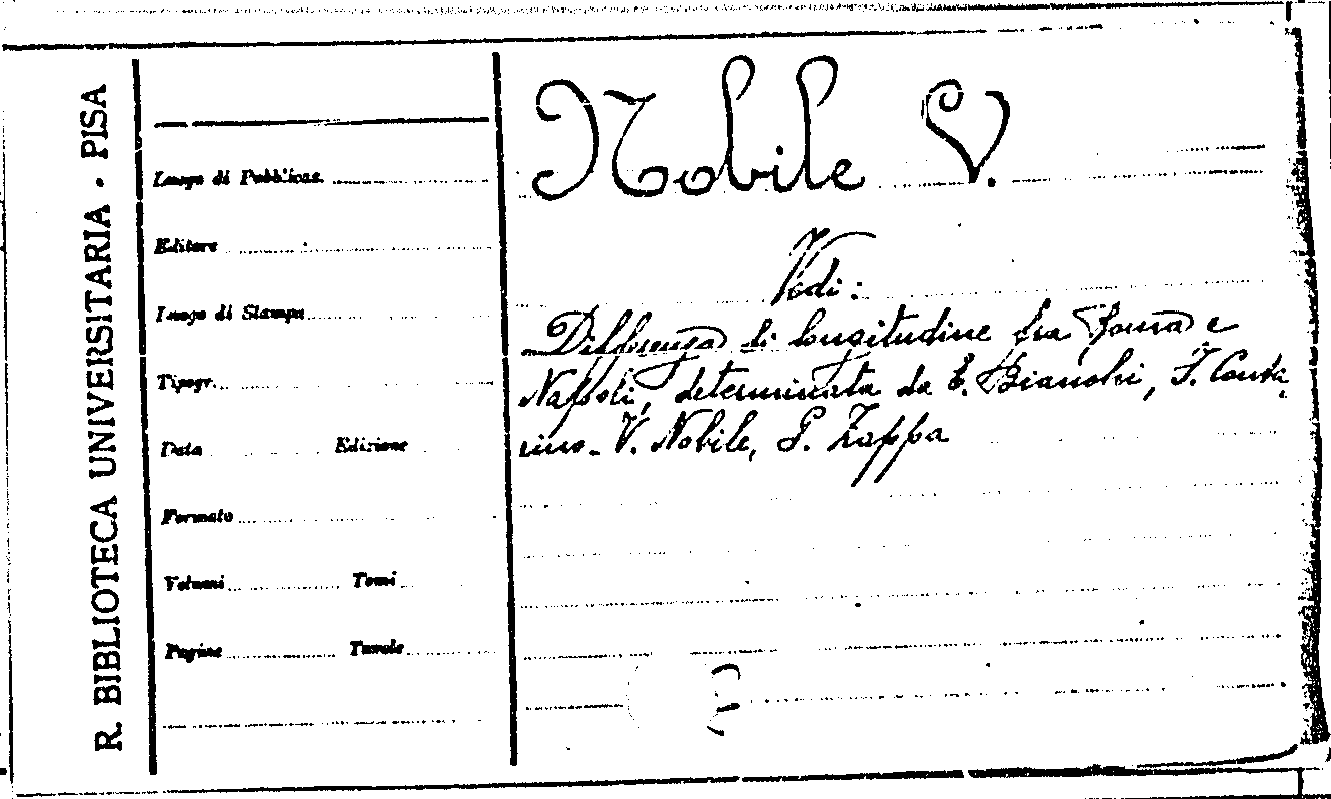 R. BIBLIOTECA UNIVERSITARIA - PISA
Luogo di Pubblicaz.
Editore
Luogo di Stampa
Tipogr.
Data Edizione
Formato
Volumi Tomi
Pagine Tavole
Nobile V.
Vedi:
Differenza di longitudine fra Roma e
Napoli, determinata da E. Bianchi, T. Conta
rino. V. Nobile, G. Zappa